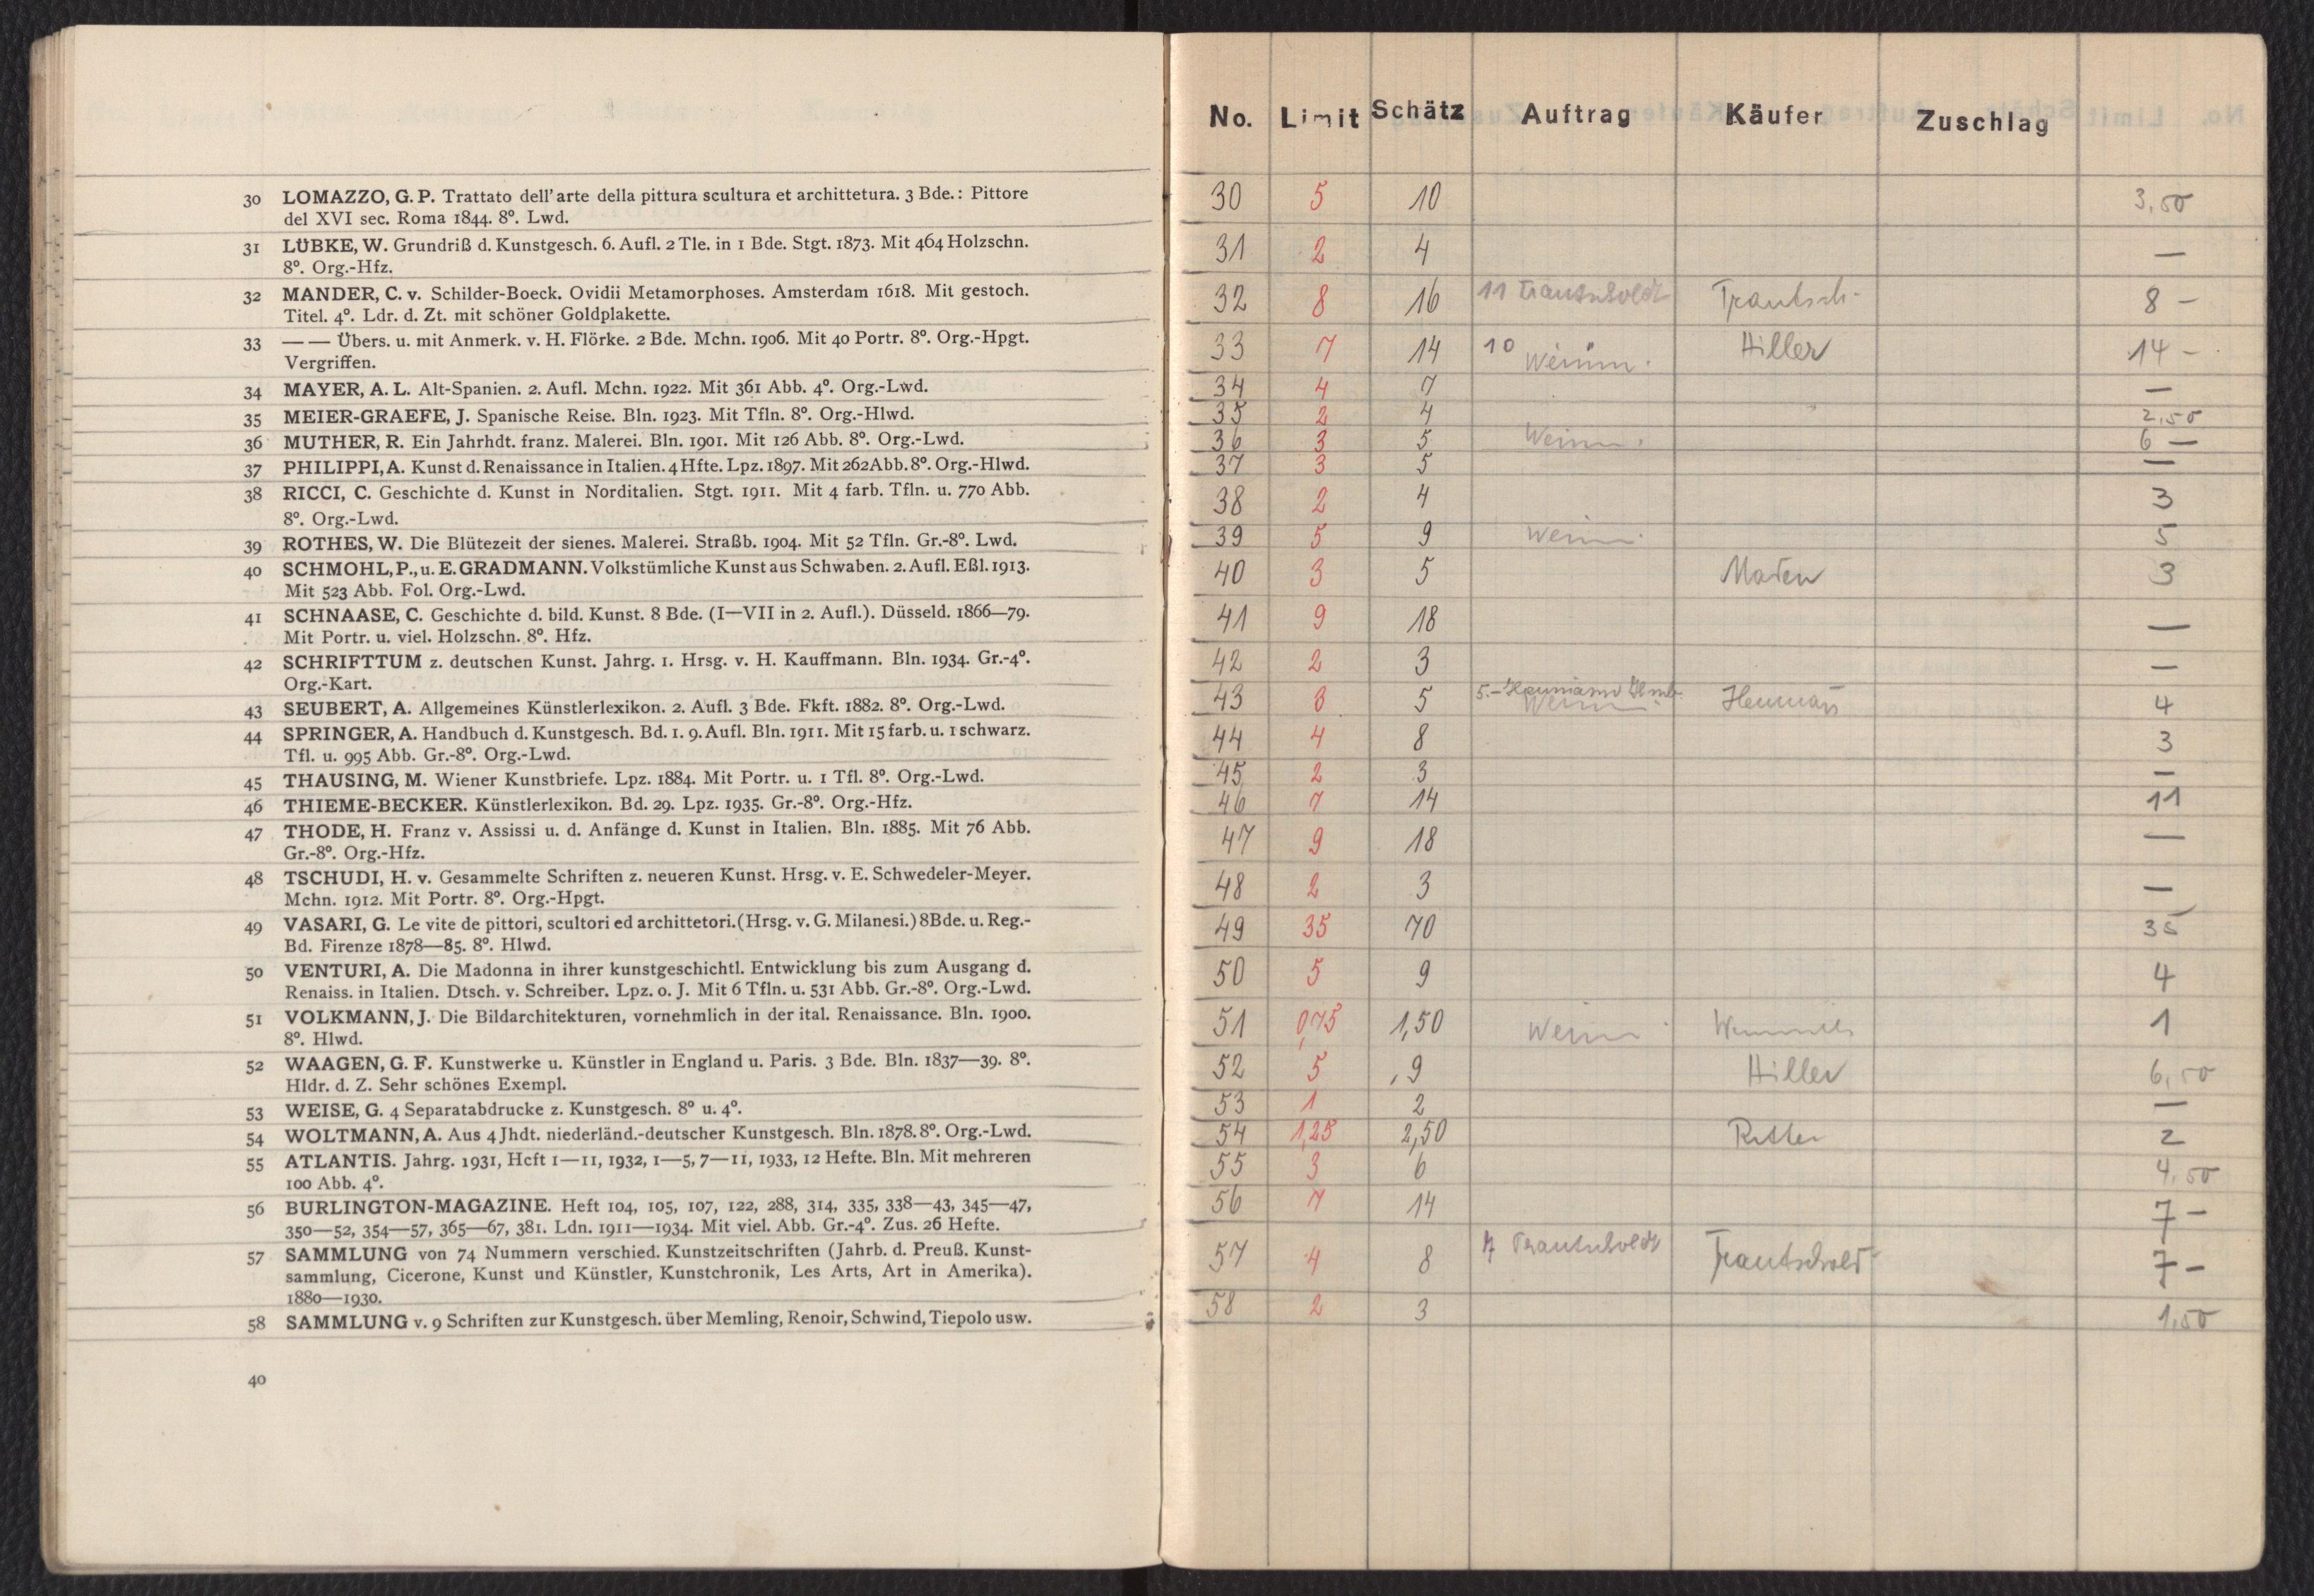 30 LOMAZZO, G. P. Trattato dell' arte della pittura scultura et archittetura. 3 Bde.: Pittore
del XVI sec. Roma 1844. 8°. Lwd.
31 LÜBKE, W. Grundriß d. Kunstgesch. 6. Aufl. 2 Tle. in 1 Bde. Stgt. 1873. Mit 464 Holzschn.
8°. Org.-Hfz.
32 MANDER, C. v. Schilder-Boeck. Ovidii Metamorphoses. Amsterdam 1618. Mit gestoch.
Titel. 4°. Ldr. d. Zt. mit schöner Goldplakette.
33 — — Übers. u. mit Anmerk. v. H. Flörke. 2 Bde. Mchn. 1906. Mit 40 Portr. 8°. Org.-Hpgt.
Vergriffen.
34 MAYER, A. L. Alt-Spanien. 2. Aufl. Mchn. 1922. Mit 361 Abb. 4°. Org.-Lwd.
35 MEIER-GRAEFE, J. Spanische Reise. Bln. 1923. Mit Tfln. 8°. Org.-Hlwd.
36 MUTHER, R. Ein Jahrhdt. franz. Malerei. Bln. 1901. Mit 126 Abb. 8°. Org.-Lwd.
37 PHILIPPI, A. Kunst d. Renaissance in Italien. 4 Hfte. Lpz. 1897. Mit 262 Abb. 8°. Org.-Hlwd.
38 RICCI, C. Geschichte d. Kunst in Norditalien. Stgt. 1911. Mit 4 farb. Tfln. u. 770 Abb.
8°. Org.-Lwd.
39 ROTHES, W. Die Blütezeit der sienes. Malerei. Straßb. 1904. Mit 52 Tfln. Gr.-8°. Lwd.
40 SCHMOHL, P., u. E. GRADMANN. Volkstümliche Kunst aus Schwaben. 2. Aufl. Eßl. 1913.
Mit 523 Abb. Fol. Org.-Lwd.
41 SCHNAASE, C. Geschichte d. bild. Kunst. 8 Bde. (I—VII in 2. Aufl.). Düsseld. 1866—79.
Mit Portr. u. viel. Holzschn. 8°. Hfz.
42 SCHRIFTTUM z. deutschen Kunst. Jahrg. 1. Hrsg. v. H. Kauffmann. Bln. 1934. Gr.-4°.
Org.-Kart.
43 SEUBERT, A. Allgemeines Künstlerlexikon. 2. Aufl. 3 Bde. Fkft. 1882. 8°. Org.-Lwd.
44 SPRINGER, A. Handbuch d. Kunstgesch. Bd. 1. 9. Aufl. Bln. 1911. Mit 15 farb. u. 1 schwarz.
Tfl. u. 995 Abb. Gr.-8°. Org.-Lwd.
45 THAUSING, M. Wiener Kunstbriefe. Lpz. 1884. Mit Portr. u. 1 Tfl. 8°. Org.-Lwd.
46 THIEME-BECKER. Künstlerlexikon. Bd. 29. Lpz. 1935. Gr.-8°. Org.-Hfz.
47 THODE, H. Franz v. Assissi u. d. Anfänge d. Kunst in Italien. Bln. 1885. Mit 76 Abb.
Gr.-8°. Org.-Hfz.
48 TSCHUDI, H. v. Gesammelte Schriften z. neueren Kunst. Hrsg. v. E. Schwedeler-Meyer.
Mchn. 1912. Mit Portr. 8°. Org.-Hpgt.
49 VASARI, G. Le vite de pittori, scultori ed archittetori. (Hrsg. v. G. Milanesi.) 8 Bde. u. Reg.-
Bd. Firenze 1878—85. 8°. Hlwd.
50 VENTURI, A. Die Madonna in ihrer kunstgeschichtl. Entwicklung bis zum Ausgang d.
Renaiss. in Italien. Dtsch. v. Schreiber. Lpz. o. J. Mit 6 Tfln. u. 531 Abb. Gr.-8°. Org.-Lwd.
51 VOLKMANN, J. Die Bildarchitekturen, vornehmlich in der ital. Renaissance. Bln. 1900.
8°. Hlwd.
52 WAAGEN, G. F. Kunstwerke u. Künstler in England u. Paris. 3 Bde. Bln. 1837—39. 8°.
Hldr. d. Z. Sehr schönes Exempl.
53 WEISE, G. 4 Separatabdrucke z. Kunstgesch. 8° u. 4°.
54 WOLTMANN, A. Aus 4 Jhdt. niederländ.-deutscher Kunstgesch. Bln. 1878. 8°. Org.-Lwd.
55 ATLANTIS. Jahrg. 1931, Heft 1—11, 1932, 1—5, 7—11, 1933, 12 Hefte. Bln. Mit mehreren
100 Abb. 4°.
56 BURLINGTON-MAGAZINE. Heft 104, 105, 107, 122, 288, 314, 335, 338—43, 345—47,
350—52, 354—57, 365—67, 381. Ldn. 1911—1934. Mit viel. Abb. Gr.-4°. Zus. 26 Hefte.
57 SAMMLUNG von 74 Nummern verschied. Kunstzeitschriften (Jahrb. d. Preuß. Kunst-
sammlung, Cicerone, Kunst und Künstler, Kunstchronik, Les Arts, Art in Amerika).
1880—1930.
58 SAMMLUNG v. 9 Schriften zur Kunstgesch. über Memling, Renoir, Schwind, Tiepolo usw.
40
No. Limit Schätz Auftrag Käufer Zuschlag
30 5 10 3,50
31 2 4 —
32 8 16 11 Trautscholdt Trautsch- 8 -
33 7 14 10 Hiller 14 -
34 4 7 —
35 2 4 2,50
36 3 5 6 —
37 3 5 —
38 2 4 3
39 5 9 5
40 3 5 3
41 9 18 —
42 2 3 —
43 3 5 5.- 4
44 4 8 3
45 2 3 —
46 7 14 11
47 9 18 —
48 2 3 —
49 35 70 35
50 5 9 4
51 0,75 1,50 1
52 5 9 Hiller 6,50
53 1 2 —
54 1,25 2,50 Ritter 2
55 3 6 4,50
56 7 14 7 -
57 4 8 7 Trautscholdt Trautschold 7 -
58 2 3 1,50